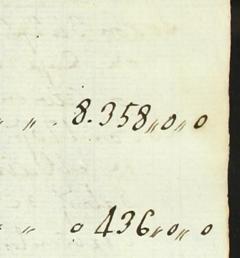 „ „ . 8.358„0„0
„ „ 0436„0„0